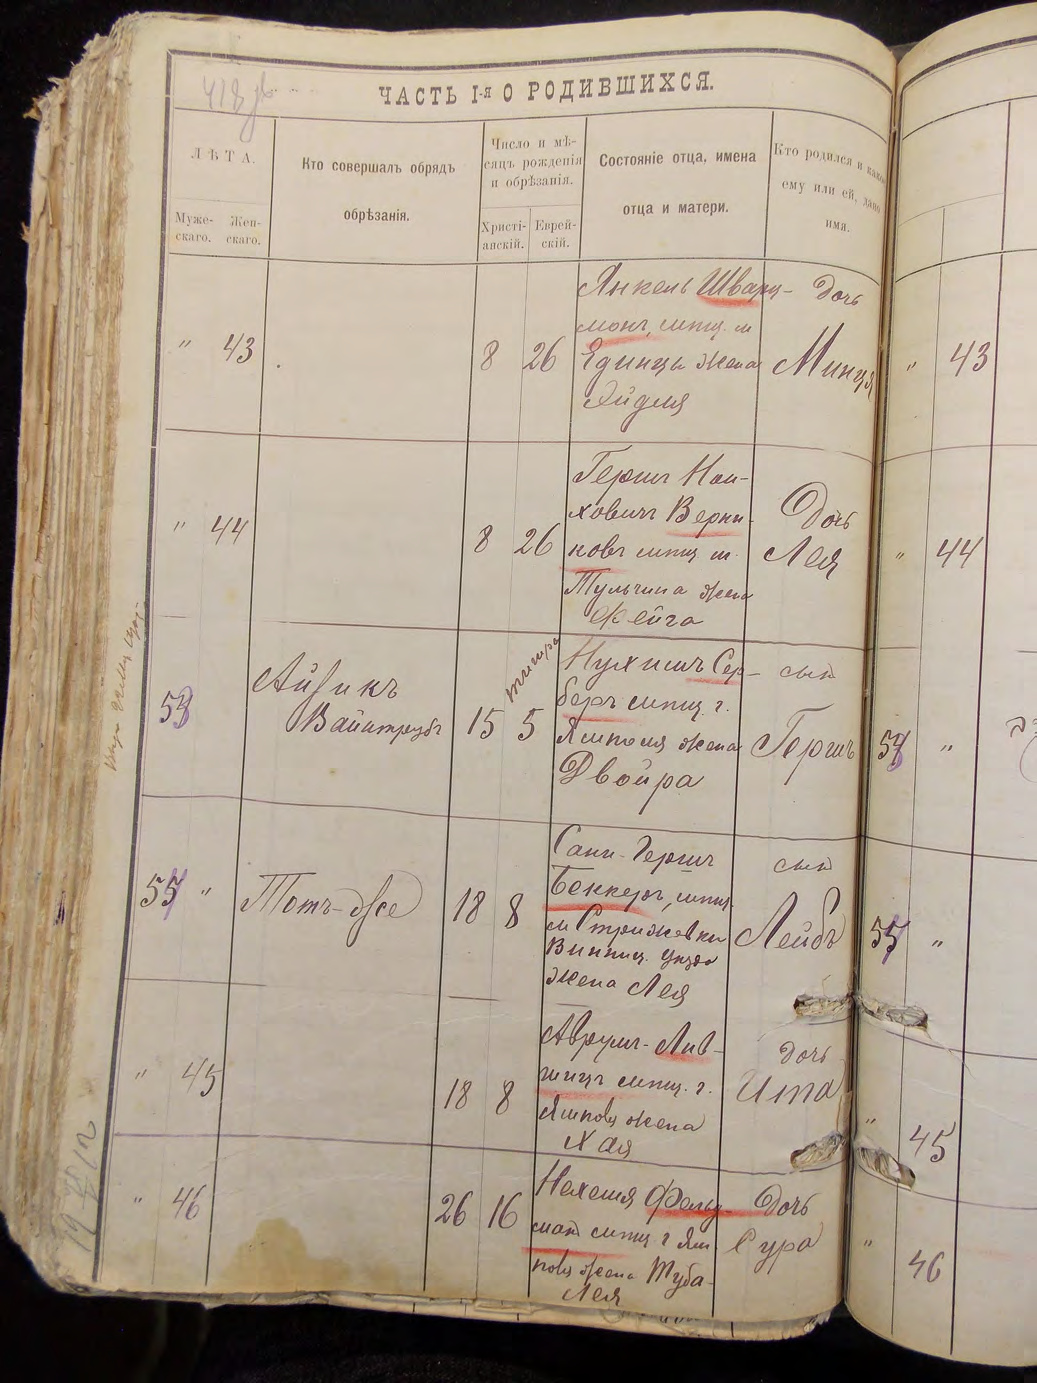 ЧАСТЬ I-я О РОДИВШИХСЯ.
ЛѢТА.
Муже-
скаго.
Жен-
скаго.
Кто совершалъ обрядъ
обрѣзанія.
Число и мѣ-
сяцъ рожденія
и обрѣзанія.
Христі-
анскій.
Еврей-
скій.
Состояніе отца, имена
отца и матери.
Кто родился и како
ему или ей, дано
имя.
" 43
8 26
Янкель Шварц-
монъ, мтщ. м
Единцы жена
Эйдля
Дочь
Минця
" 43
" 44
8 26
Гершъ Наи-
ховичъ Верни-
ковъ мтщ м.
Тульчина жена
Фейга
Дочь
Лея
" 44
53
Айзикъ
Вайнтрубъ
15 5
Нухимъ Сер-
беръ мтщ. г.
Ямполя жена
Двойра
сынъ
Гершъ
53 "
55 "
Тотъ-же
18 8
Сани-Гершъ
Беккеръ, мтщ
м Стрижевки
Винниц. уѣзда
жена Лея
сынъ
Лейбъ
55 "
" 45
18 8
Аврумъ-Лив-
шицъ мтщ. г.
Ямполя жена
Хая
дочь
Ита
" 45
" 46
26 16
Нехемія Фельд-
манъ мтщ г Ям-
поля жена Туба-
Лея
Дочь
Сура
" 46